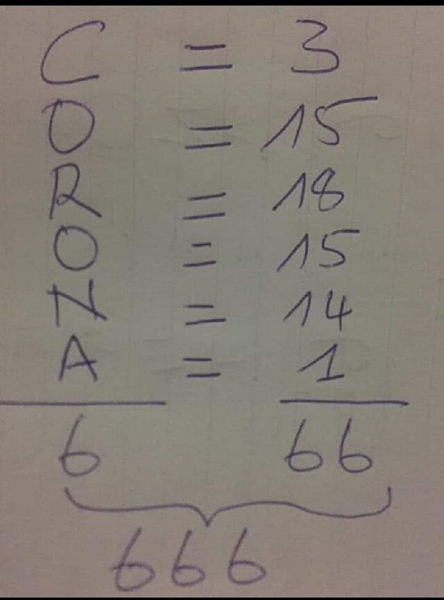 C = 3
O = 15
R = 18
O = 15
N = 14
A = 1
6 66
666